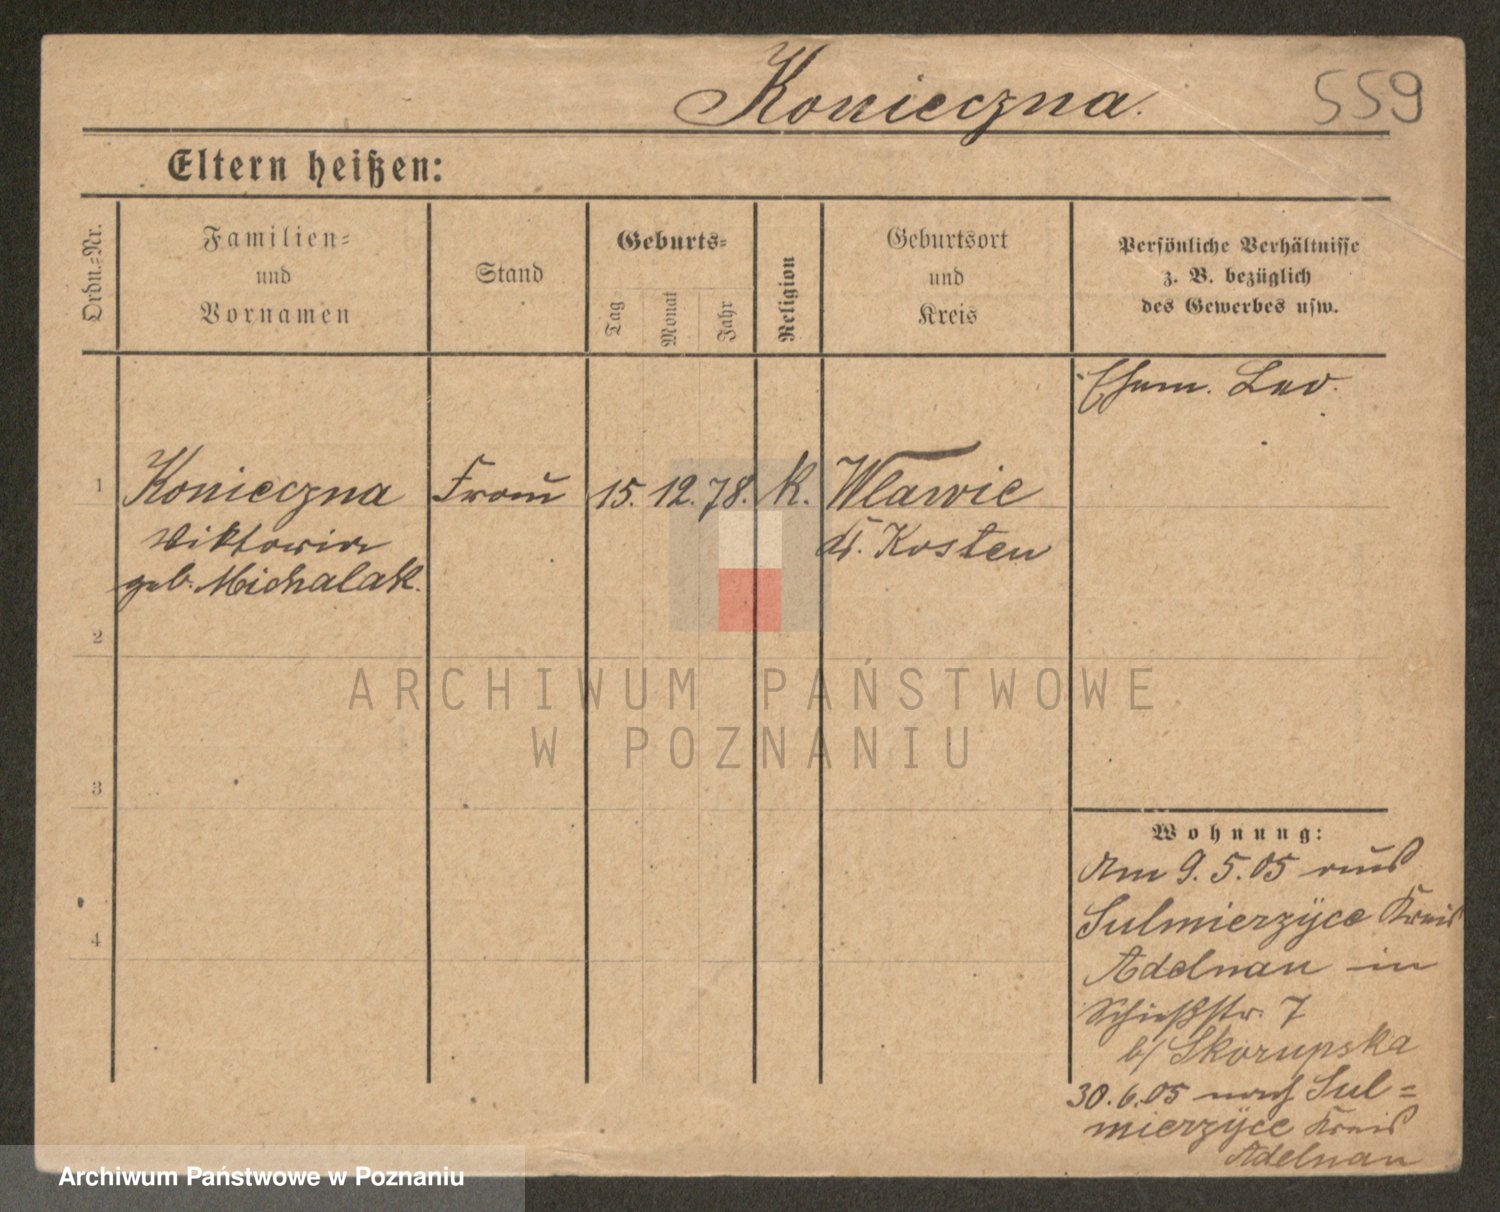 Konieczna. 559
Eltern heißen:
Ordn.-Nr.
Familien-
und
Vornamen
Stand
Geburts-
Tag
Monat
Jahr
Religion
Geburtsort
und
Kreis
Persönliche Verhältnisse
z. B. bezüglich
des Gewerbes usw.
Ehem. Leo.
1 Konieczna Frau 15. 12. 78. k. Wlawie
Viktoria Kosten
geb. Michalak.
2
3
4
Wohnung:
Am 9. 5. 05 aus
Sulmierzÿce Kreis
Adelnau in
Schießstr. 7
b/ Skorupska
30. 6. 05 nach Sul=
mierzÿce Kreis
Adelnau
ARCHIWUM PAŃSTWOWE
W POZNANIU
Archiwum Państwowe w Poznaniu